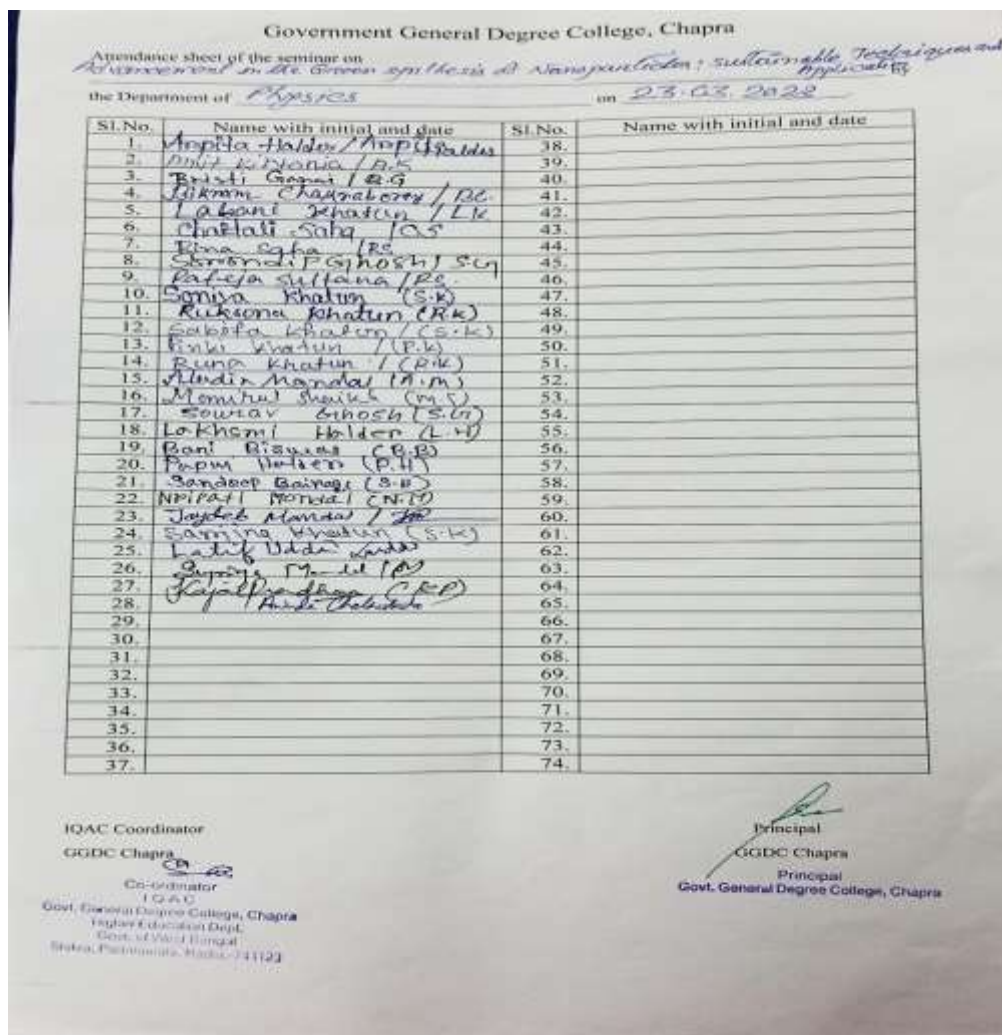 Government General Degree College, Chapra
Attendance sheet of the seminar on
Advancement in the Green synthesis of Nanoparticles: Sustainable Techniques and Applications
the Department of Physics on 23.03.2022
Sl.No. Name with initial and date Sl.No. Name with initial and date
1. Arpita Halder / Arpita Halder 38.
2. Kirtonia / A.K 39.
3. Bristi Ganai / B.G 40.
4. Bikram Chakraborty / BC. 41.
5. Labani Khatun / LK 42.
6. Chaitali Saha / CS 43.
7. Rina Saha / RS 44.
8. GHOSH / SG 45.
9. Sultana / RS. 46.
10. Soniya Khatun (S.K) 47.
11. Ruksona Khatun (RK) 48.
12. Khatun / (S.K) 49.
13. Pinki Khatun / (P.K) 50.
14. Runa Khatun / (R.K) 51.
15. Mandal (A.M) 52.
16. Momirul Shaikh (M S) 53.
17. Sourav Ghosh (S.G) 54.
18. Lakhsmi Halder (L.H) 55.
19. Bani Biswas (B.B) 56.
20. (P.H) 57.
21. Sandeep Bairagi (S.B) 58.
22. Nripati Mondal (N.M) 59.
23. Jaydeb Mandal / 60.
24. Samina Khatun (S.K) 61.
25. Latif Uddin 62.
26. 63.
27. Kajal Pradhan (KP) 64.
28. 65.
29. 66.
30. 67.
31. 68.
32. 69.
33. 70.
34. 71.
35. 72.
36. 73.
37. 74.
IQAC Coordinator Principal
GGDC Chapra GGDC Chapra
Co-ordinator Principal
IQAC Govt. General Degree College, Chapra
Govt. General Degree College, Chapra
Higher Education Dept.
Govt. of West Bengal
Nadia-741123